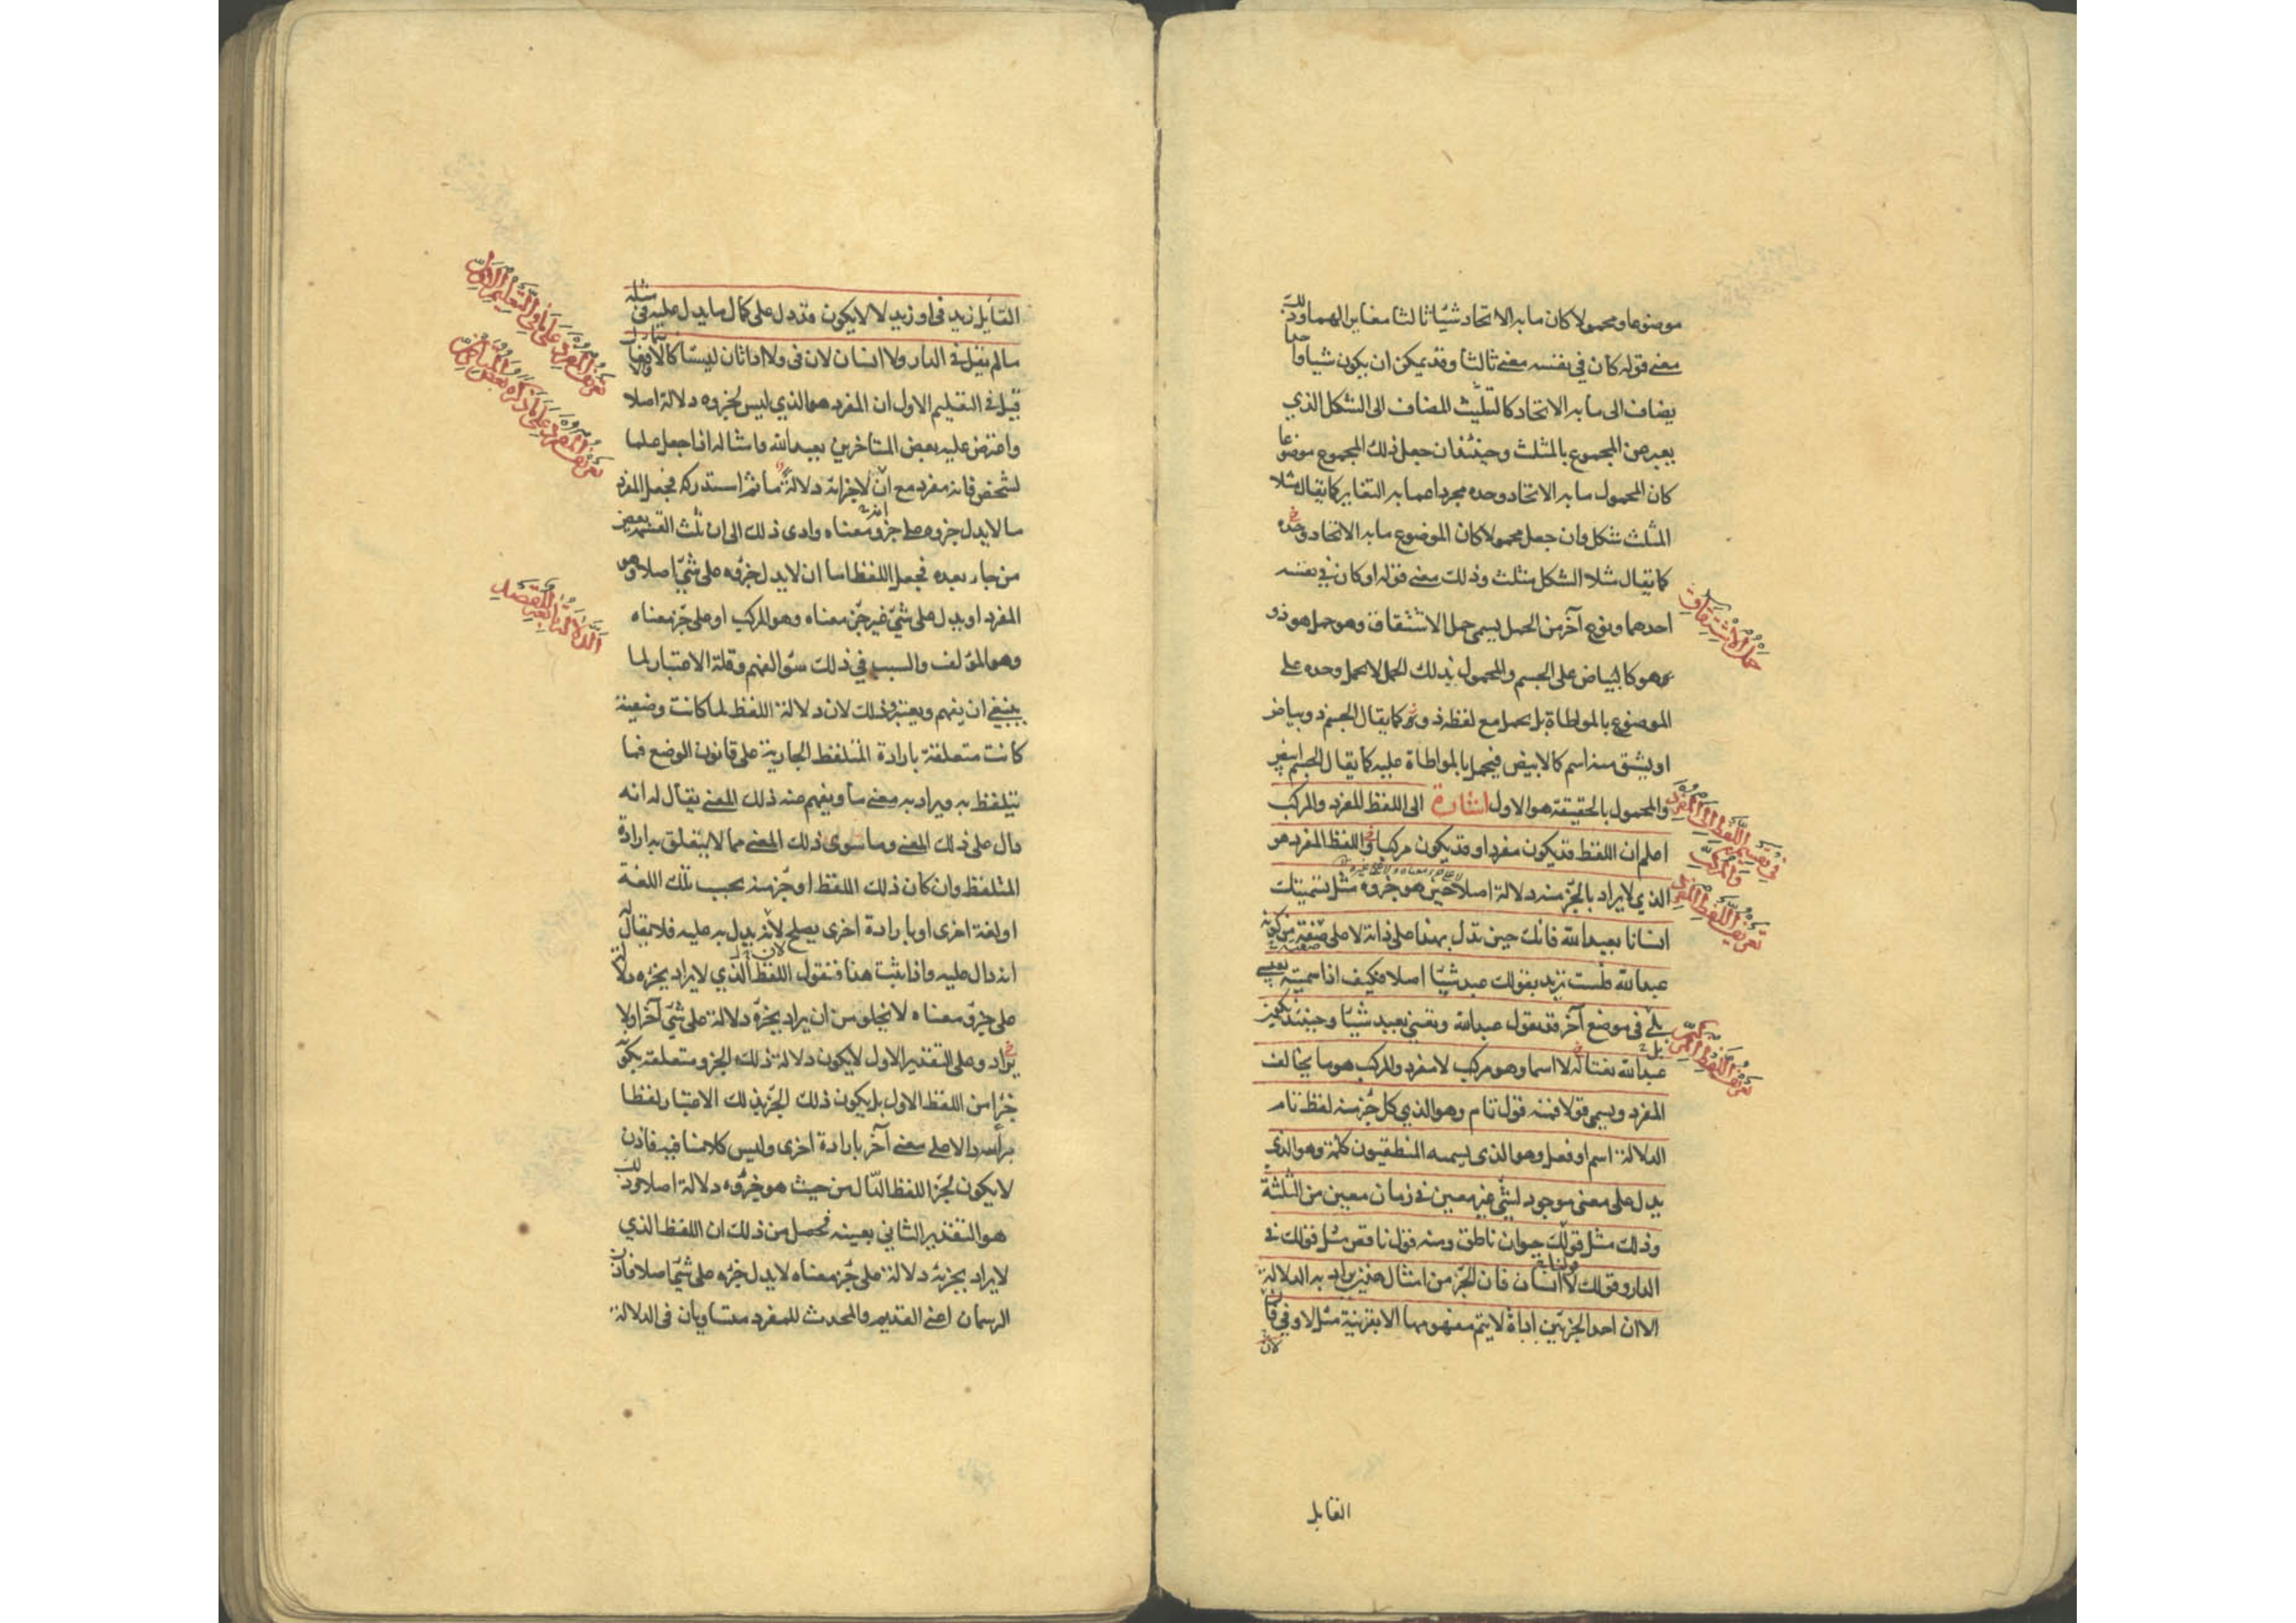 موضوعا ومحمولا كان ما به الاتحاد شيئا ثالثا مغايرا لهما وذلك
معنى قوله كان في نفسه معنى ثالثا وقد يمكن ان يكون شيأ واحدا
يضاف الى ما به الاتحاد كالتثليث المضاف الى الشكل الذي
يعبر عن المجموع بالمثلث وحينئذ فان جعل ذلك المجموع موضوعا
كان المحمول ما به الاتحاد وحده مجردا عما به التغاير كما يقال مثلا
المثلث شكل وان جعل محمولا كان الموضوع ما به الاتحاد وحده
كما يقال مثلا الشكل مثلث وذلك معنى قوله او كان في نفسه
احدهما ونوع آخر من الحمل يسمى حمل الاشتقاق وهو حمل هو ذو
حمل الاشتقاق
هو كالبياض على الجسم والمحمول بذلك الحمل لا يحمل وحده على
الموضوع بالمواطاة بل يحمل مع لفظه ذو كما يقال الجسم ذو بياض
او يشتق منه اسم كالابيض فيحمل بالمواطاة عليه كما يقال الجسم ابيض
والمحمول بالحقيقة هو الاول اشارة الى اللفظ المفرد والمركب
في تقسيم اللفظ الى المفرد
والمركب
اعلم ان اللفظ قد يكون مفردا وقد يكون مركبا واللفظ المفرد هو
الذي لا يراد بالجزء منه دلالة اصلا حين هو جزوه مثل تسميتك
تعريف اللفظ المفرد
انسانا بعبد الله فانك حين تدل بهذا على ذاته لا على صفته من كونه
عبد الله فلست تريد بقولك عبد شيئا اصلا فكيف اذا سميته بعيسى
بلى في موضع آخر قد يقول عبد الله وتعني بعبد شيئا وحينئذ يكون
تعريف اللفظ المركب
عبد الله نعتا له لا اسما وهو مركب لا مفرد والمركب هو ما يخالف
المفرد ويسمى قولا فمنه قول تام وهو الذي كل جزء منه لفظ تام
الدلالة اسم او فعل وهو الذي يسميه المنطقيون كلمة وهو الذي
يدل على معنى موجود لشئ غير معين في زمان معين من الثلثة
وذلك مثل قولك حيوان ناطق ومنه قول ناقص مثل قولك في
الدار وقولك لا انسان فان الجزء من امثال هذين يراد به الدلالة
الا ان احد الجزئين اداة لا يتم مفهومها الا بقرينة مثل لا وفي فان
القايل
القايل زيد في او زيد لا لا يكون قد دل على كمال ما يدل عليه في مثله
ما لم يقل في الدار ولا انسان لان في ولا اداتان ليستا كالاسماء
تعريف المفرد على ما في التعليم الاول
قيل في التعليم الاول ان المفرد هو الذي ليس لجزوه دلالة اصلا
واعترض عليه بعض المتاخرين بعبد الله وامثاله اذا جعل علما
لشخص فانه مفرد مع ان لاجزائه دلالة ما ثم استدركه فجعل المفرد
تعريف المفرد على ما ذكره بعض المتاخرين
ما لا يدل جزوه على جزو معناه وادى ذلك الى ان ثلث القسمة بعض
من جاء بعده فجعل اللفظ اما ان لا يدل جزؤه على شئ اصلا وهو
المفرد او يدل على شئ غير جزء معناه وهو المركب او على جزء معناه
وهو المؤلف والسبب في ذلك سؤ الفهم وقلة الاعتبار لما
ينبغي ان يفهم ويعتبر وذلك لان دلالة اللفظ لما كانت وضعية
كانت متعلقة بارادة المتلفظ الجارية على قانون الوضع فما
يتلفظ به ويراد به معنى ما ويفهم منه ذلك المعنى يقال له انه
دال على ذلك المعنى وما سوى ذلك المعنى مما لا يتعلق به ارادة
المتلفظ وان كان ذلك اللفظ او جزء منه بحسب تلك اللغة
او لغة اخرى او بارادة اخرى يصلح لان يدل به عليه فلا يقال له
انه دال عليه واذا ثبت هذا فنقول اللفظ الذي لا يراد بجزءه دلالة
على جزو معناه لا يخلو من ان يراد بجزءه دلالة على شئ آخر او لا
يراد وعلى التقدير الاول لا يكون دلالة ذلك الجزو متعلقة بكونه
جزأ من اللفظ الاول بل يكون ذلك الجزء بذلك الاعتبار لفظا
برأسه دالا على معنى آخر بارادة اخرى وليس كلامنا فيه فاذن
لا يكون لجزء اللفظ الدال من حيث هو جزؤه دلالة اصلا وذلك
هو التقدير الثاني بعينه فحصل من ذلك ان اللفظ الذي
لا يراد بجزئه دلالة على جزء معناه لا يدل جزءه على شئ اصلا فاذن
الرسمان اعني القديم والمحدث للمفرد متساويان في الدلالة